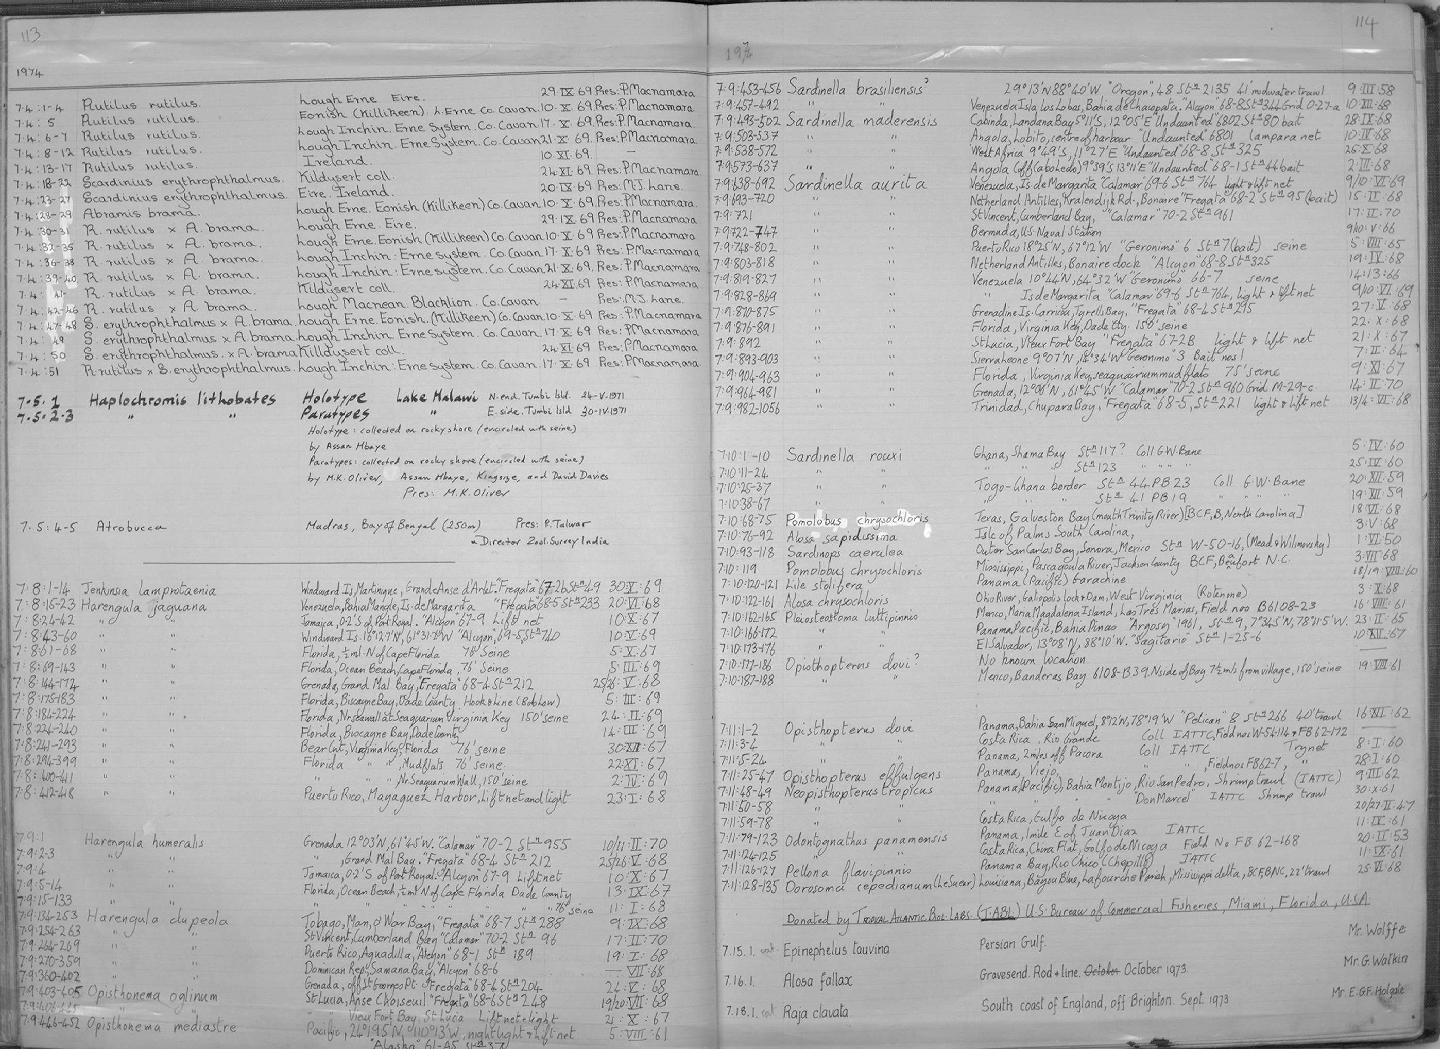 113
1974
7·4·:1-4 Rutilus rutilus. Lough Erne Eire. 29·IX·69 Pres: P.Macnamara
7·4·: 5 Rutilus rutilus. Eonish (Killikeen) L.Erne Co. Cavan. 10·X·69 Pres: P.Macnamara
7·4·: 6-7 Rutilus rutilus. Lough Inchin. Erne System. Co. Cavan 17·X·69 Pres: P.Macnamara
7·4·: 8-12 Rutilus rutilus. Lough Inchin. Erne System. Co. Cavan 21·X·69 Pres: P.Macnamara
7·4·: 13-17 Rutilus rutilus. Ireland. 10·XI·69. –
7·4·: 18-22 Scardinius erythrophthalmus. Kildysert coll. 24·XI·69 Pres: P.Macnamara
7·4·: 23-27 Scardinius erythrophthalmus. Eire, Ireland. 20·IX·69 Pres: M.J. Lane.
7·4·: 28-29 Abramis brama. Lough Erne. Eonish (Killikeen) Co. Cavan 10·X·69 Pres: P.Macnamara
7·4·: 30-31 R. rutilus x A. brama. Lough Erne. Eire. 29·IX·69 Pres: P.Macnamara
7·4·: 32-35 R. rutilus x A. brama. Lough Erne. Eonish (Killikeen) Co. Cavan 10·X·69 Pres: P.Macnamara
7·4·: 36-38 R. rutilus x A. brama. Lough Inchin: Erne system. Co. Cavan 17·X·69 Pres: P.Macnamara
7·4·: 39-40 R. rutilus x A. brama. Lough Inchin: Erne system. Co. Cavan 21·X·69 Pres: P.Macnamara
7·4·: 41- R. rutilus x A. brama. Kildysert coll. 24·XI·69 Pres: P.Macnamara
7·4·: 42-46 R. rutilus x A. brama. Lough Macnean Blacklion. Co. Cavan – Pres: M.J. Lane.
7·4·: 47-48 S. erythrophthalmus x A. brama. Lough Erne. Eonish. (Killikeen) Co. Cavan 10·X·69 Pres: P.Macnamara
7·4·: 49 S. erythrophthalmus x A. brama. Lough Inchin: Erne System. Co. Cavan. 17·X·69 Pres: P.Macnamara
7·4·: 50 S. erythrophthalmus. x A. brama Killdysert coll. 24·XI·69 Pres: P.Macnamara
7·4·: 51 R. rutilus x S. erythrophthalmus. Lough Inchin: Erne System. Co. Cavan. 17·X·69 Pres: P.Macnamara
7·5: 1 Haplochromis lithobates Holotype Lake Malawi N. end. Tumbi Isld. 24-V-1971
7·5: 2-3 " " Paratypes " E. side. Tumbi Isld 30-IV-1971
Holotype: collected on rocky shore (encircled with seine)
by Assan Mbaye
Paratypes: collected on rocky shore (encircled with seine)
by M.K. Oliver, Assan Mbaye, Kingsize, and David Davies
Pres: M.K. Oliver
7·5: 4-5 Atrobucca Madras, Bay of Bengal (250m) Pres: P. Talwar
Director Zool. Survey India
7·8:1-14 Jenkinsia lamprotaenia Windward Is, Martinique, Grande Anse d'Arlet. "Fregata" 67-2b Stn 49 30:X:69
7·8:15-23 Harengula jaguana Venezuela, Bahia Mangle, Is. de Margarita "Fregata" 68-5 Stn 233 20·VI:68
7·8:24-42 " " Jamaica, 0·2'S of Port Royal. "Alcyon" 67-9 Lift net 10·X·67
7·8:43-60 " " Windward Is. 18°27'N, 61°31·7'W "Alcyon", 69-5 Stn 740 10·X·69
7·8:61-68 " " Florida, ½ml. N of Cape Florida 76' Seine 5·X·67
7·8:69-143 " " Florida, Ocean Beach, Cape Florida. 76' Seine 5·III·69
7·8:144-174 " " Grenada, Grand Mal Bay, "Fregata" 68-4 Stn 212 25/26·V·68
7·8:175-183 " " Florida, Biscayne Bay, Dade County Hook & line (Bob Low) 5: III: 69
7·8:184-224 " " Florida, Nr. seawall at Seaquarium Virginia Key 150' seine 24·II·69
7·8:224-240 " " Florida, Biscayne Bay, Dade County 14·III·69
7·8:241-293 " " Bear Cut, Virginia Key, Florida 76' seine 30·XII·67
7·8:294-399 " " Florida " " , Mudflats 76' seine 22·XI·67
7·8:400-411 " " " " , Nr. Seaquarium Wall, 150' seine 2·IV·69
7·8:412-418 " " Puerto Rico, Mayaguez Harbor, Lift net and light 23:I:68
7·9:1 Harengula humeralis Grenada 12°03'N, 61°45'W. "Calamar" 70-2 Stn 955 10/11·II·70
7·9:2-3 " " " , Grand Mal Bay. "Fregata" 68-4 Stn 212 25/26·V·68
7·9:4 " " Jamaica, 0·2'S of Port Royal. "Alcyon" 67-9 Lift net 10·X·67
7·9:5-14 " " Florida, Ocean Beach, ½ml N of Cape Florida Dade County 13·IX·67
7·9:15-133 " " " " " 76' seine 11·I·68
7·9:134-253 Harengula clupeola Tobago, Man, o' War Bay, "Fregata" 68-7 Stn 288 9·IX·68
7·9:254-263 " " St Vincent, Cumberland Bay "Calamar" 70-2 Stn 96 17:II:70
7·9:264-269 " " Puerto Rico, Aguadilla, "Alcyon" 68-1 Stn 189 19·I·68
7·9:270-359 " " Dominican Rep, Samana Bay, "Alcyon" 68-6 — VII·68
7·9:360-402 " " Grenada, off St Georges Pt. "Fregata" 68-4 Stn 204 24·V·68
7·9:403-405 Opisthonema oglinum St Lucia, Anse Choiseuil "Fregata" 68-6 Stn 248 19/20·VII·68
" " View Fort Bay, St Lucia Lift net & light 21·X·67
7·9:446-452 Opisthonema mediastre Pacific, 24°19·5'N, 110°13'W, night light & lift net 5·VIII·61
"Alaska" 61-A5 Stn 37
114
197
7:9:453-456 Sardinella brasiliensis? 29°13'N 88°40'W "Oregon", 48 Stn 2135 41' midwater trawl 9·III·58
7:9:457-492 " " Venezuela Isla Los Lobos, Bahia de Charapata. "Alcyon" 68-8 Stn 344 Grid 0-27-a 10·XII·68
7:9:493-502 Sardinella maderensis Cabinda, Landana Bay 5°11'S, 12°05'E "Undaunted" 6802 Stn 80 bait 28·IX·68
7:9:503-537 " " Angola, Lobito, centre of harbour "Undaunted" 6801 lampara net 10·II·68
7:9:538-572 " " West Africa 9°49'S, 11°27'E "Undaunted" 68-8 Stn 325 26·X·68
7:9:573-637 " " Angola (off Cabo Ledo) 9°39'S 13°11'E "Undaunted" 68-1 Stn 44 bait 2·III·68
7:9:638-692 Sardinella aurita Venezuela, Is de Margarita "Calamar" 69-6 Stn 764 light & lift net 9/10·VI·69
7:9:693-720 " " Netherland Antilles, Kralendijk Rd., Bonaire "Fregata" 68-2 Stn 95 (bait) 15·II·68
7:9:721 " " St Vincent, Cumberland Bay, "Calamar" 70-2 Stn 961 17:II:70
7:9722-747 " " Bermuda, U.S. Naval Station 9/10·V·66
7:9:748-802 " " Puerto Rico 18°25'N, 67°12'W "Geronimo" 6 Stn 7 (bait) seine 5·VIII·65
7:9:803-818 " " Netherland Antilles, Bonaire dock "Alcyon" 68-8 Stn 325 19:IX:68
7:9:819-827 " " Venezuela 10°44'N, 64°32'W "Geronimo" 66-7 seine 14:13:66
7:9:828-869 " " " Is de Margarita "Calamar" 69-6 Stn 764, light & lift net 9/10·VI·69
7:9:870-875 " " Grenadine Is. Carriou, Tyrells Bay, "Fregata" 68-4 Stn 215 27·V·68
7:9:876-891 " " Florida, Virginia Key, Dade Cty. 150' seine 22·X·68
7:9:892 " " St Lucia, Vieux Fort Bay "Fregata" 67-2B light & lift net 21·X·67
7:9:893-903 " " Sierra Leone 9°07'N, 18°34'W "Geronimo" 3 Bait no 1 7·II·64
7:9:904-963 " " Florida, Virginia Key, seaquarium mudflats 75' seine 9·XI·67
7:9:964-981 " " Grenada, 12°08'N, 61°45'W "Calamar" 70-2 Stn 960 Grid M-29-c 14·II·70
7:9:982-1056 " " Trinidad, Chupara Bay, "Fregata" 68-5, Stn 221 light & lift net 13/14·VI·68
7:10:1-10 Sardinella rouxi Ghana, Shama Bay Stn 117? Coll G.W. Bane 5·IV·60
7:10:11-24 " " " " Stn 123 " " " 25·IX·60
7:10:25-37 " " Togo-Ghana border Stn 44 PB 23 Coll G.W. Bane 20·XII·59
7:10:38-67 " " " " Stn 41 PB 19 " " " 19·VII·59
7:10:68-75 Pomolobus chrysochloris Texas, Galveston Bay (mouth Trinity River) [BCF, B, North Carolina] 18·VI·68
7:10:76-92 Alosa sapidissima Isle of Palms South Carolina, 3·V·68
7:10:93-118 Sardinops caerulea Outer San Carlos Bay, Sonora, Mexico Stn W-50-16, (Mead & Wilmovsky) 1·VI·50
7:10:119 Pomolobus chrysochloris Mississippi, Pascagoula River, Jackson County BCF, Beaufort N.C. 3·VII·68
7:10:120-121 Lile stolifera Panama (Pacific) Garachine 18/19·VIII·60
7:10:122-161 Alosa chrysochloris Ohio River, Galiopolis Lock & Dam, West Virginia (Rotenone) 3·X·68
7:10:162-165 Pliosteostoma lutipinnis Mexico, Maria Magdalena Island, Las Tres Marias, Field no B6108-23 16·VIII·61
7:10:166-172 " " Panama, Pacific, Bahia Pinas "Argosy" 1961, Stn 9, 7°34·5'N, 78°11·5'W. 23·II·65
7:10:173-176 " " El Salvador, 13°08'N, 88°10'W. "Sagitario" Stn 1-25-6 10·XII·67
7:10:177-186 Opisthopterus dovi? No known location
7:10:187-188 " " Mexico, Banderas Bay 6108-B39. N side of Bay 7½mls from village, 150' seine 19·VIII·61
7:11:1-2 Opisthopterus dovii Panama, Bahia San Miguel, 8°12'N, 78°19'W "Pelican" 8 Stn 266 40' trawl 16·XII·62
7:11:3-4 " " Costa Rica, Rio Grande Coll IATTC, Field nos W-54-114 & FB 62-172
7:11:5-24 " " Panama, 2 miles off Pacora Coll IATTC Try net 8·I·60
7:11:25-47 Opisthopterus effulgens Panama, Viejo, " , Field nos FB 62-7, " 28·I·60
7:11:48-49 Neopisthopterus tropicus Panama (Pacific), Bahia Montijo, Rio San Pedro, Shrimp trawl (IATTC) 9·III·62
7:11:50-58 " " " " " "Don Marcel" IATTC Shrimp trawl 30·X·61
7:11:59-78 " " Costa Rica, Gulfo de Nicoya 20/27·II·47
7:11:79-123 Odontognathus panamensis Panama, 1 mile E of Juan Diaz IATTC 11·IX·61
7:11:124-125 " " Costa Rica, China Flat, Golfo de Nicoya Field No FB 62-168 20·II·53
7:11:126-127 Pellona flavipinnis Panama Bay, Rio Chico (Chepillo) IATTC 11·IX·61
7:11:128-135 Dorosoma cepedianum (Le Sueur) Louisiana, Bayou Blue, Lafourche Parish, Mississippi delta, BCF, BNC, 22' trawl 25·VI·68
Donated by Tropical Atlantic Biol. Labs (T.A.B.L) U.S. Bureau of Commercial Fisheries, Miami, Florida, U.S.A
7.15.1. cat Epinephelus tauvina Persian Gulf. Mr. Wolffe
7.16.1. Alosa fallax Gravesend. Rod + line. October October 1973. Mr. G. Watkin
7.18.1. cat Raja clavata South coast of England, off Brighton. Sept. 1973 Mr. E.G.F. Holgate